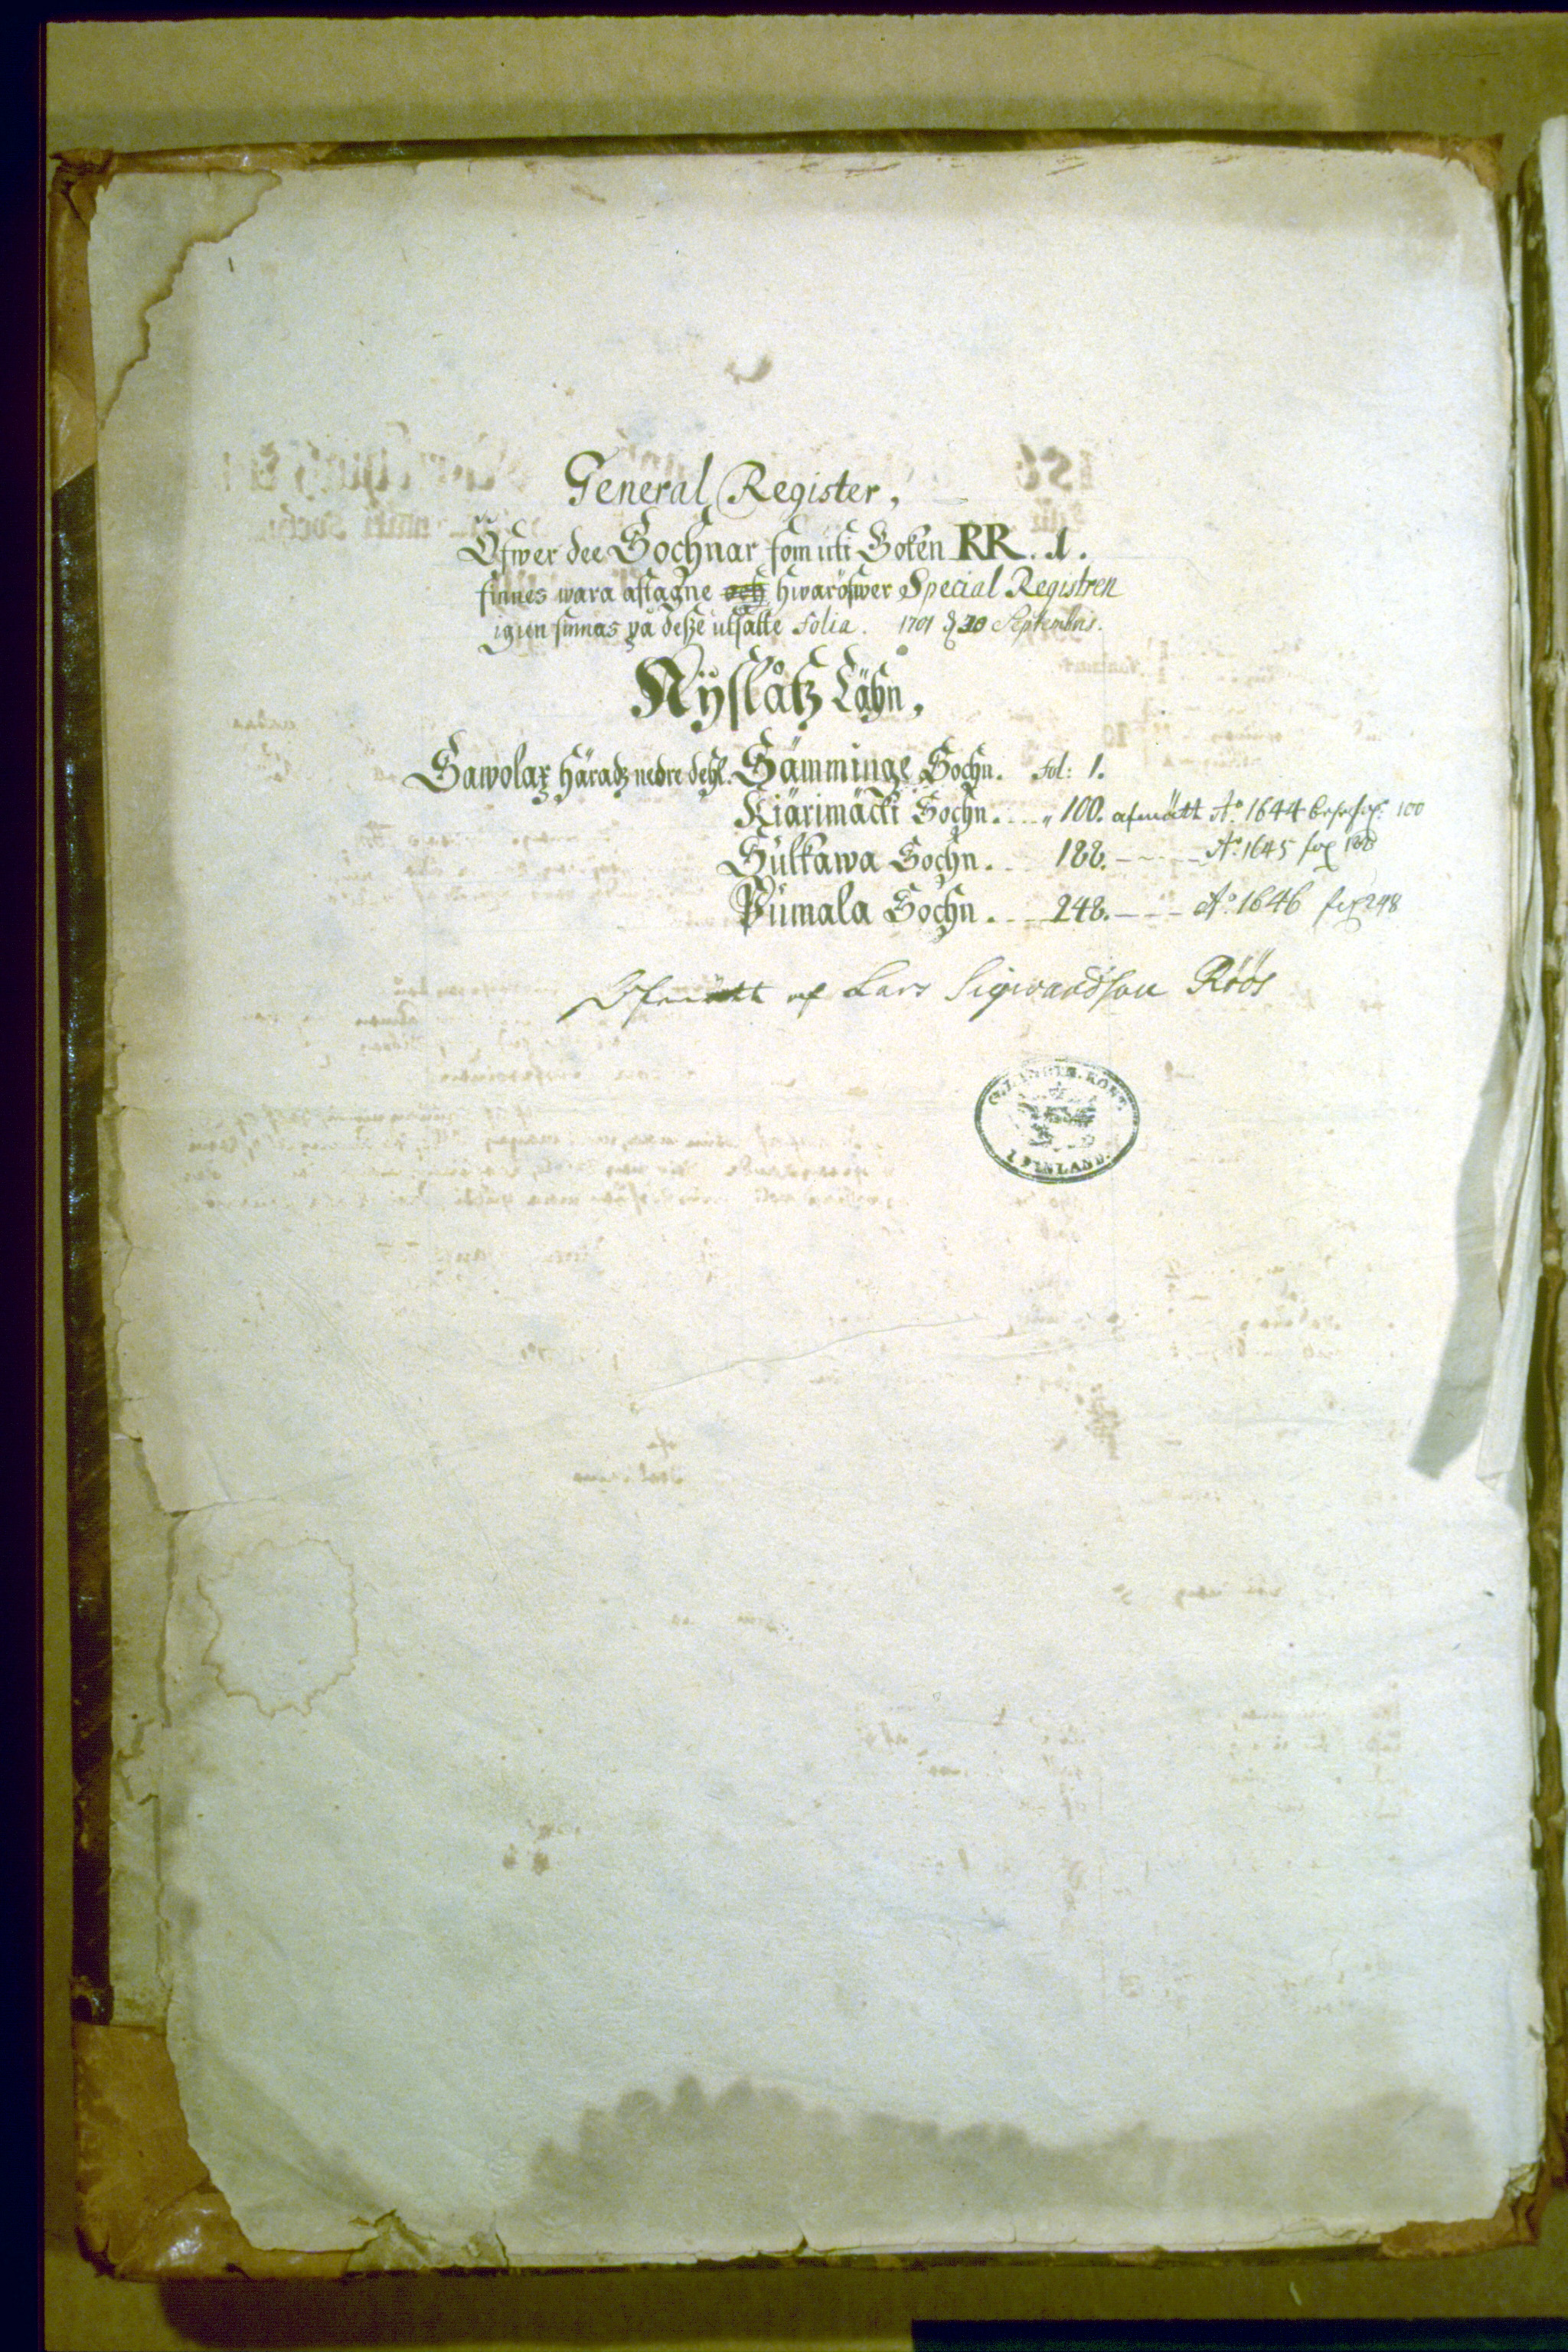 General Register,
Öfwer dee Sochnar som uti Boken RR. 1.
finnes wara aftagne och hwaröfwer Special Registren
igien finnas på desze utsatte Folia. 1701 d 30 Septembris.
Nÿslåtz Lähn,
Sawolax Häradz nedre dehl. Sämminge Sochn. Fol: 1.
Kiärimäcki Sochn. .... „ 100. afmätt A:o 1644 100
Sulkawa Sochn. .. 188. - - - - A:o 1645 188
Pumala Sochn. ... 248. - - - A:o 1646 248
Afmätt af Lars Sigwardsson Röös
KONT.
I FINLAND.